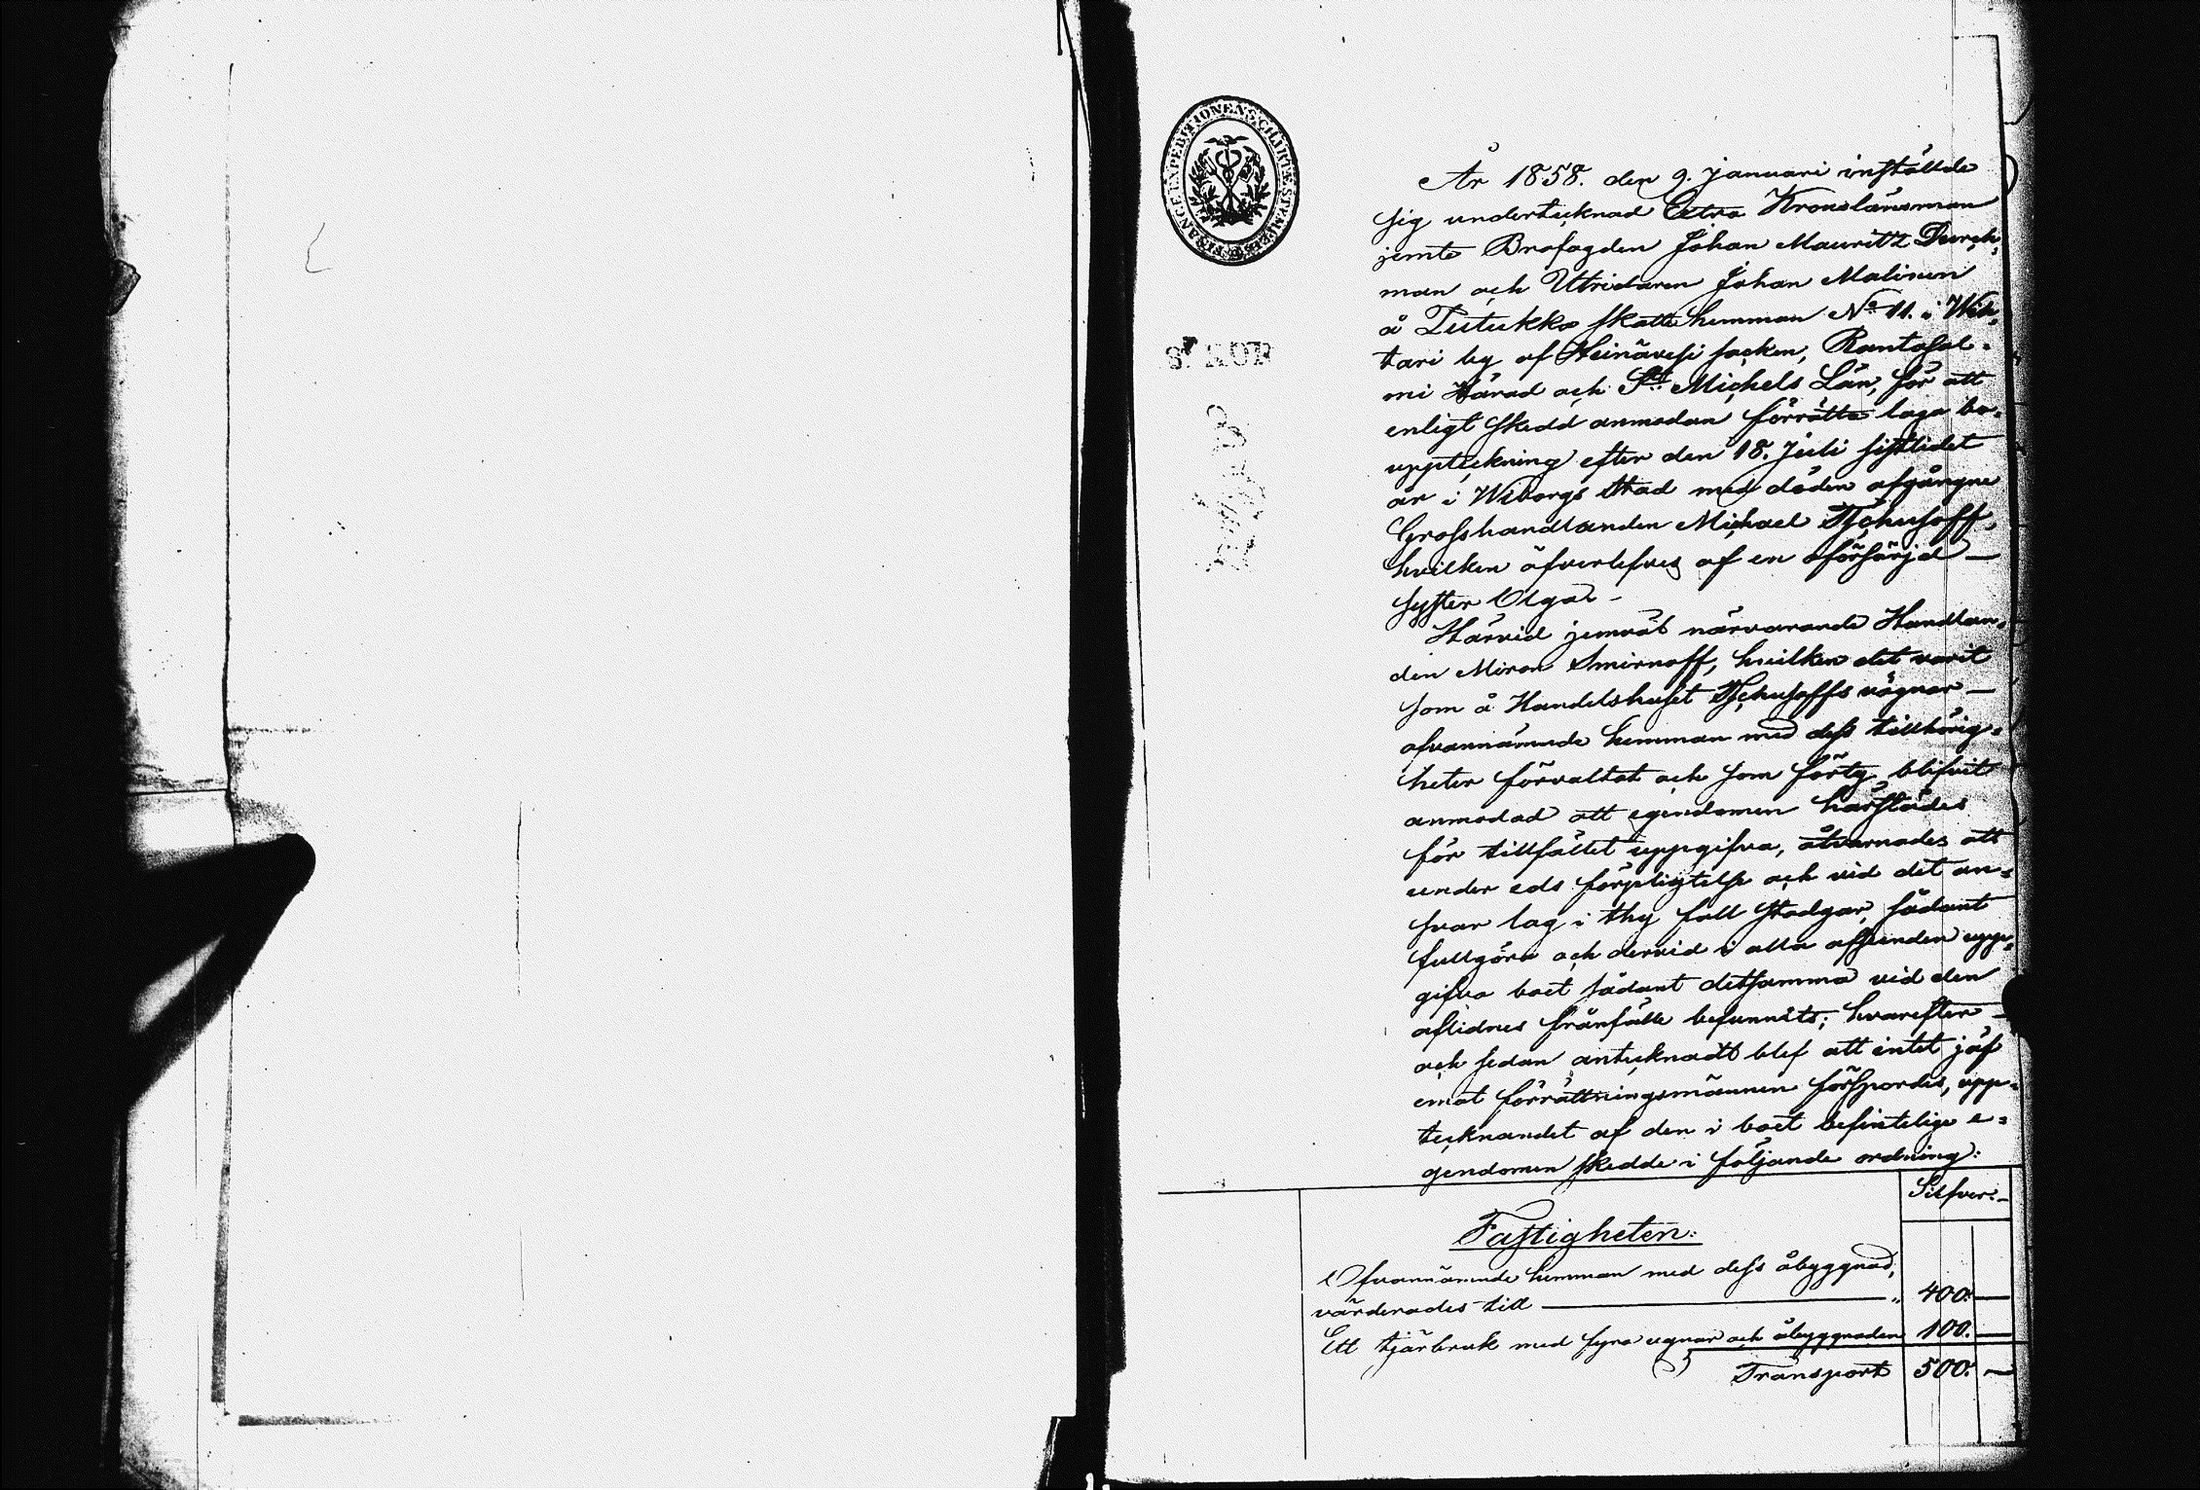 FINANCE EXPEDITIONENS CHARTÆ STÆMPEL
S. KOP
År 1858. den 9. Januari inställde
sig undertecknad Extra Kronolänsman
jemte Brofogden Johan Mauritz Durch-
man och Utridaren Johan Malinen
å Tutukka skatte hemman No 11. i Wih-
tari by af Heinävesi socken, Rantasal-
mi Härad och St Michels Län, för att
enligt skedd anmodan förrätta laga bo-
uppteckning efter den 18. Juli sistlidet
år i Wiborgs Stad med döden afgångne
Grosshandlanden Michael Tschusoff,
hvilken öfverlefves af en oförsörjd
syster Olga.
Härvid jemväl närvarande Handlan-
den Miron Smirnoff, hvilken det varit
som å Handelshuset Tschusoffs vägnar
ofvannämnde hemman med dess tillhörig-
heter förvaltat och som förty blifvit
anmodad att egendomen härstädes
för tillfället uppgifva, åtvarnades att
under eds förpligtelse och vid det an-
svar lag i thy fall stadgar, sådant
fullgöra och dervid i alla afseenden upp-
gifva boet sådant detsamma vid den
aflidnes frånfälle befunnits; hvarefter
och sedan antecknadt blef att intet jäf
emot förrättningsmännen förspordes, upp-
tecknandet af den i boet befintelige e-
gendomen skedde i följande ordning:
Silfver.
Fastigheten:
Ofvannämnde hemman med dess åbyggnad,
värderades till 400.
Ett tjärbruk med fyra ugnar och åbyggnaden 100.
Transport 500.